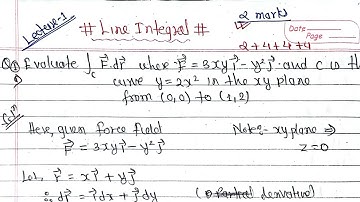 Lecture-1
# Line Integral #
2 marks
Date
Page
2+4+4+4
Q1) Evaluate ∫c F⃗.dr⃗ where F⃗ = 3xyi⃗ - y²j⃗ and c is the
curve y = 2x² in the xy plane
from (0,0) to (1,2)
Solⁿ
Here, given force field
F⃗ = 3xyi⃗ - y²j⃗
Note:- xy plane ⇒
z=0
Let, r⃗ = xi⃗ + yj⃗
∴ dr⃗ = i⃗dx + j⃗dy
derivative)